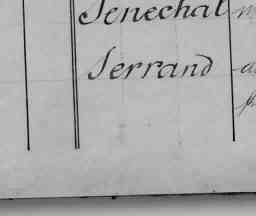 Senechal
Serrand